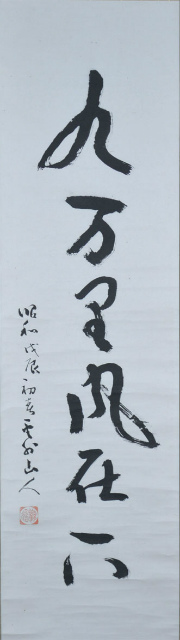 九万里風在下
昭和戊辰初春外山人